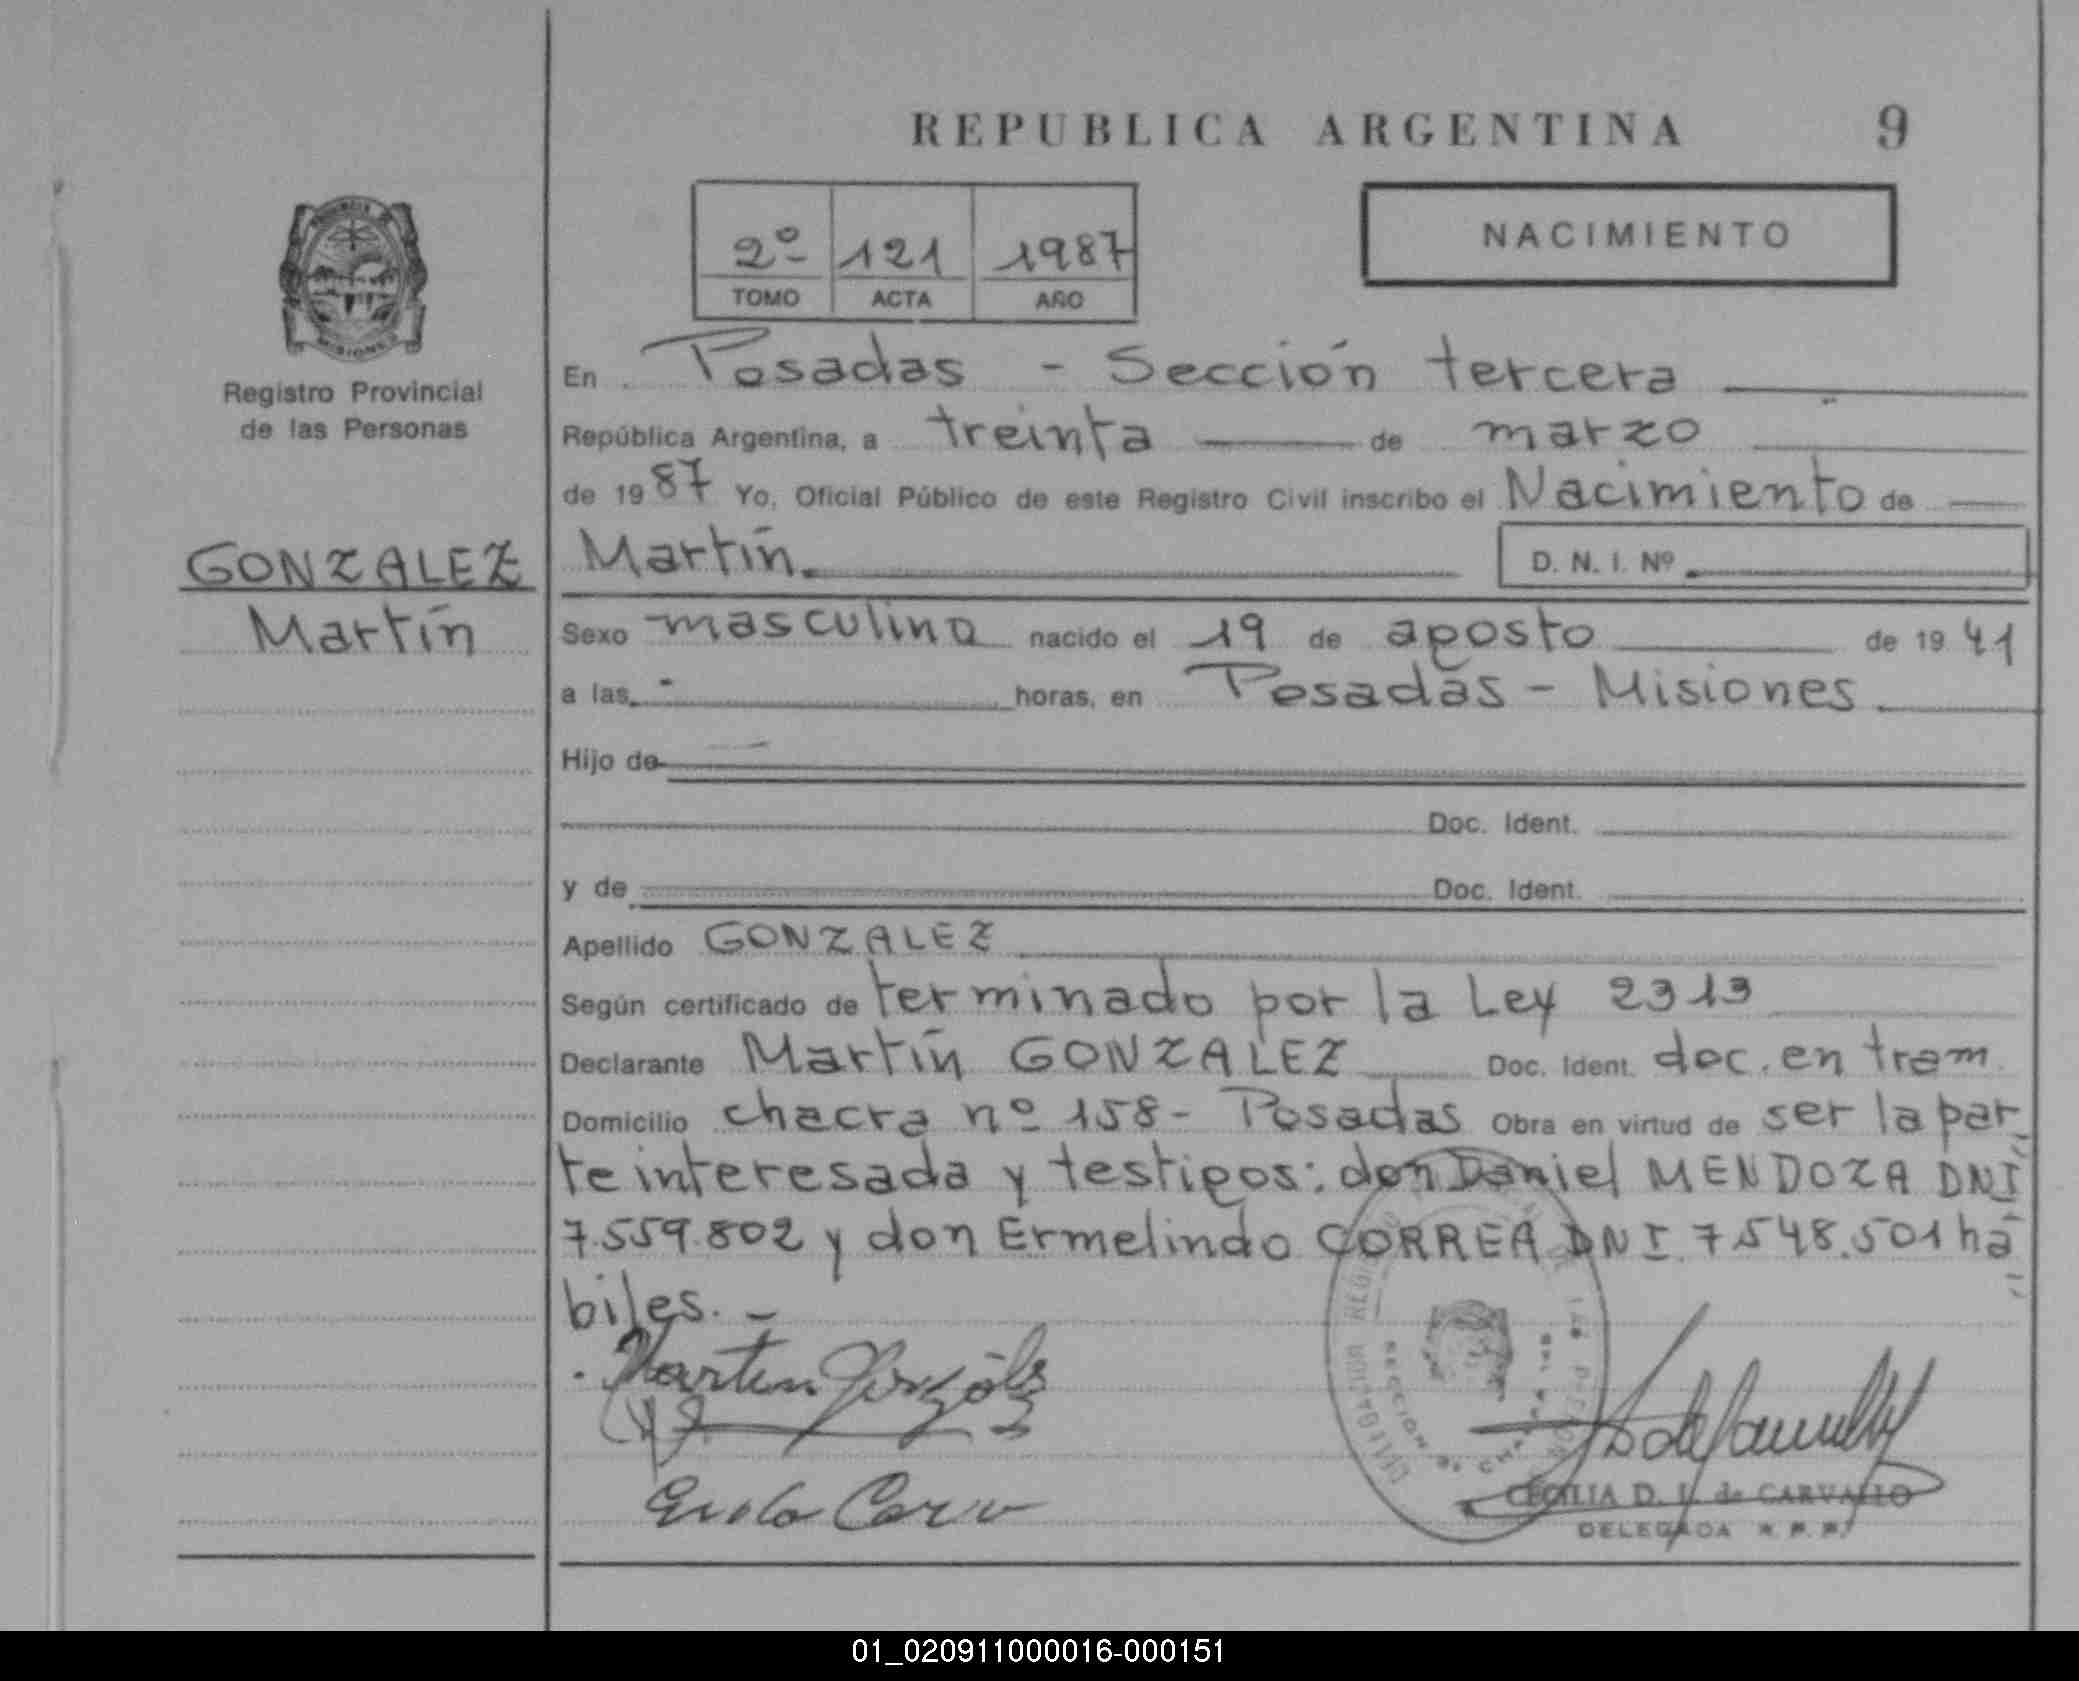 REPUBLICA ARGENTINA 9
NACIMIENTO
2º 121 1987
TOMO ACTA AÑO
MISIONES
Registro Provincial
de las Personas
GONZALEZ
Martín
En Posadas - Sección tercera
República Argentina, a treinta de marzo
de 1987 Yo, Oficial Público de este Registro Civil inscribo el Nacimiento de
Martín. D. N. I. Nº
Sexo masculino nacido el 19 de agosto de 1941
a las - horas, en Posadas - Misiones
Hijo de
Doc. Ident.
y de Doc. Ident.
Apellido GONZALEZ
Según certificado de terminado por la Ley 2313
Declarante Martín GONZALEZ Doc. Ident. doc. en tram.
Domicilio chacra nº 158 - Posadas Obra en virtud de ser la par
te interesada y testigos: don Daniel MENDOZA DNI
7.559.802 y don Ermelindo CORREA DNI 7.548.501 há
biles. -
Martin Gonzalez
CECILIA D. I. de CARVALLO
DELEGADA R. P. P.
01_020911000016-000151